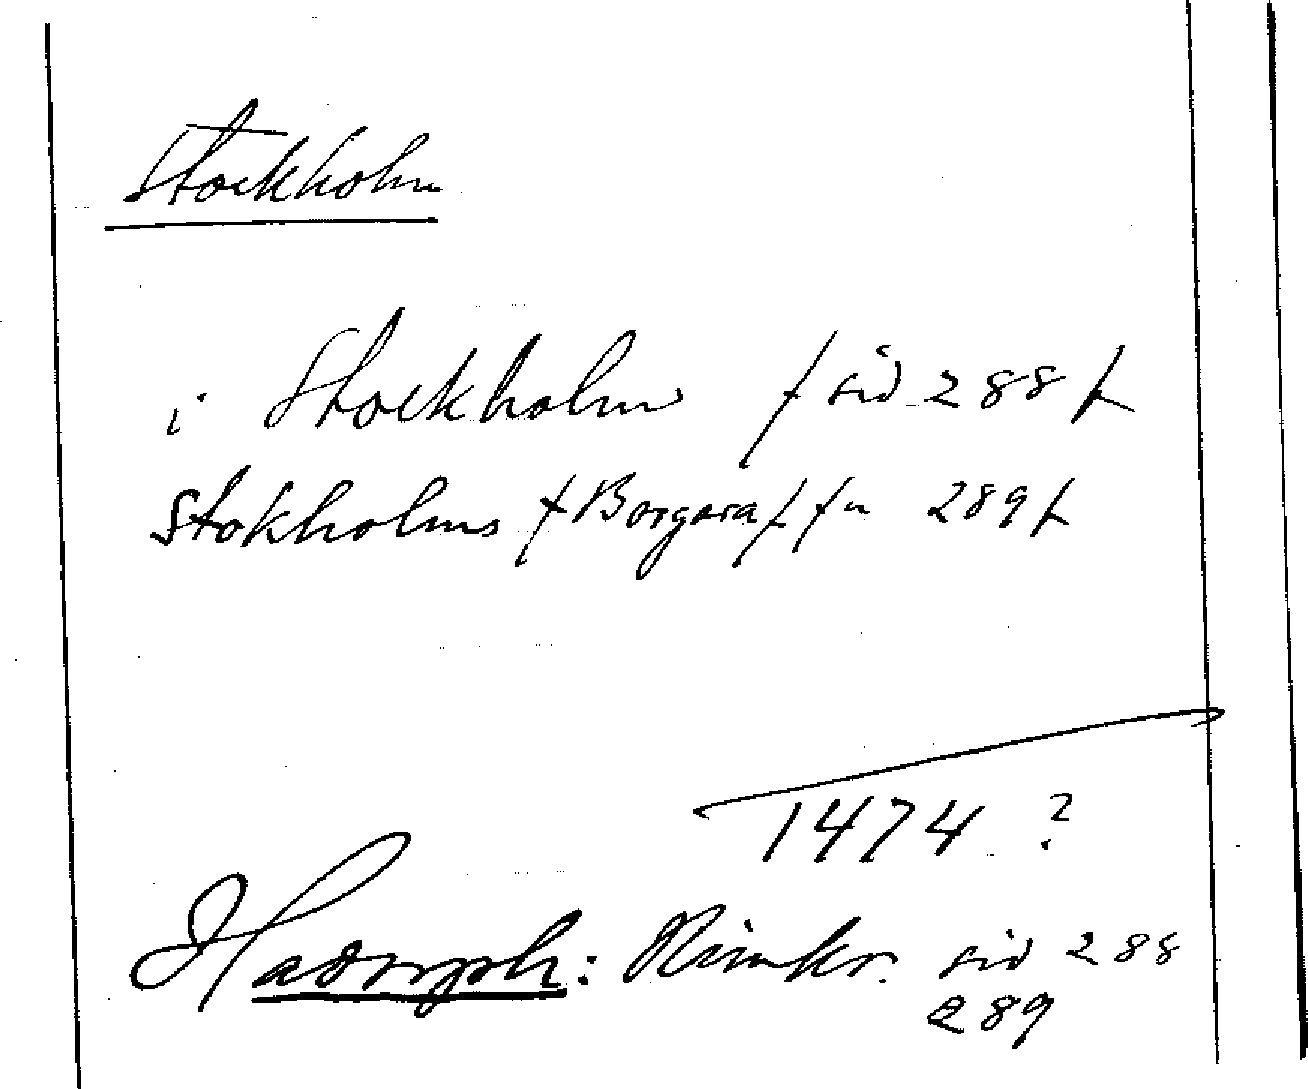 Stockholm
i Stockholm / sid 288 /
Stokholms / Borgara / / " 289 /
1474 ?
Hadorph: Rimkr. sid 288
289